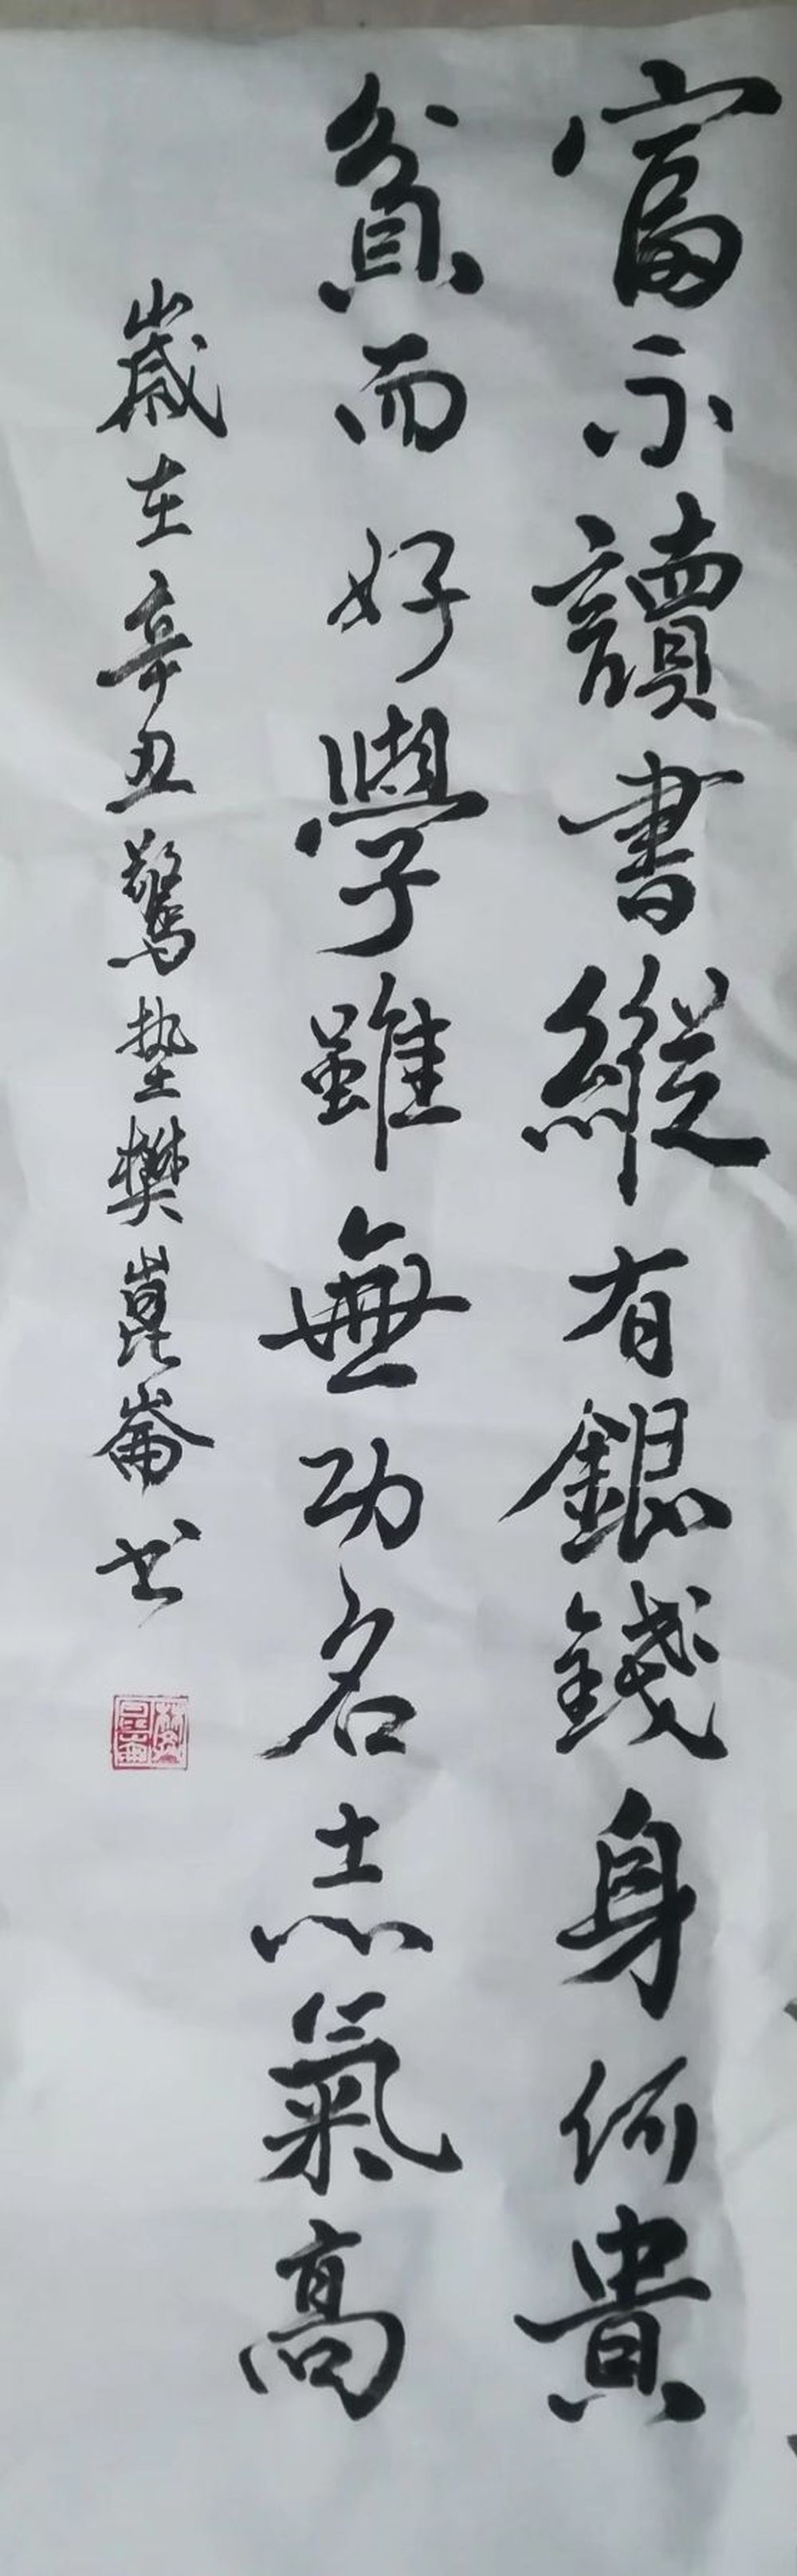 富不讀書縱有銀錢身何貴
貧而好學雖無功名志氣高
歲在辛丑驚蟄樊崑崙书